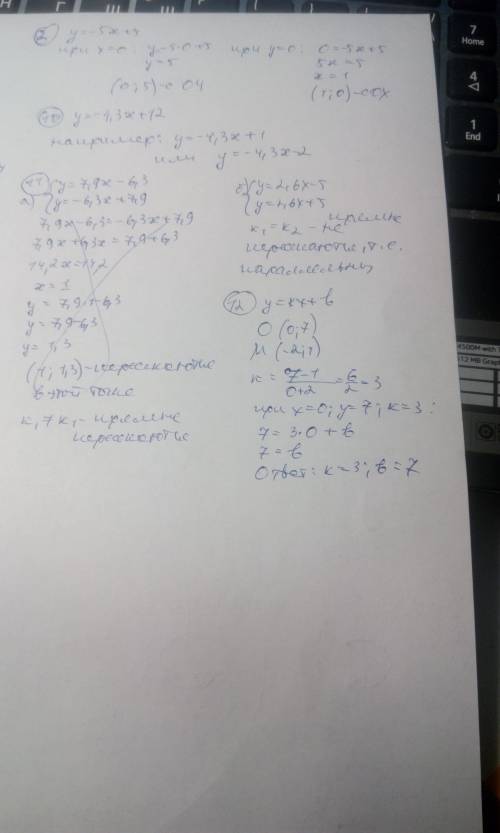 y=-5x+5
при x=0: y=-5·0+5
y=5
(0; 5)-с ОУ
при y=0: 0=-5x+5
5x=5
x=1
(1; 0)-с ОХ
10 y=-4,3x+12
например: y=-4,3x+1
или y=-4,3x-2
11
а) y=7,9x-6,3
y=-6,3x+7,9
7,9x-6,3=-6,3x+7,9
7,9x+6,3x=7,9+6,3
14,2x=14,2
x=1
y=7,9·1-6,3
y=7,9-6,3
y=1,3
(1; 1,3)-пересекаются
в этой точке
прямые
пересекаются
б) y=2,6x-5
y=2,6x+5
k₁=k₂ - прямые не
пересекаются, т.е.
параллельны
12 y=kx+b
O (0;7)
M (-2;1)
k=7-1/0+2=6/2=3
при x=0; y=7; k=3:
7=3·0+b
7=b
Ответ: k=3; b=7
7
Home
4
1
End